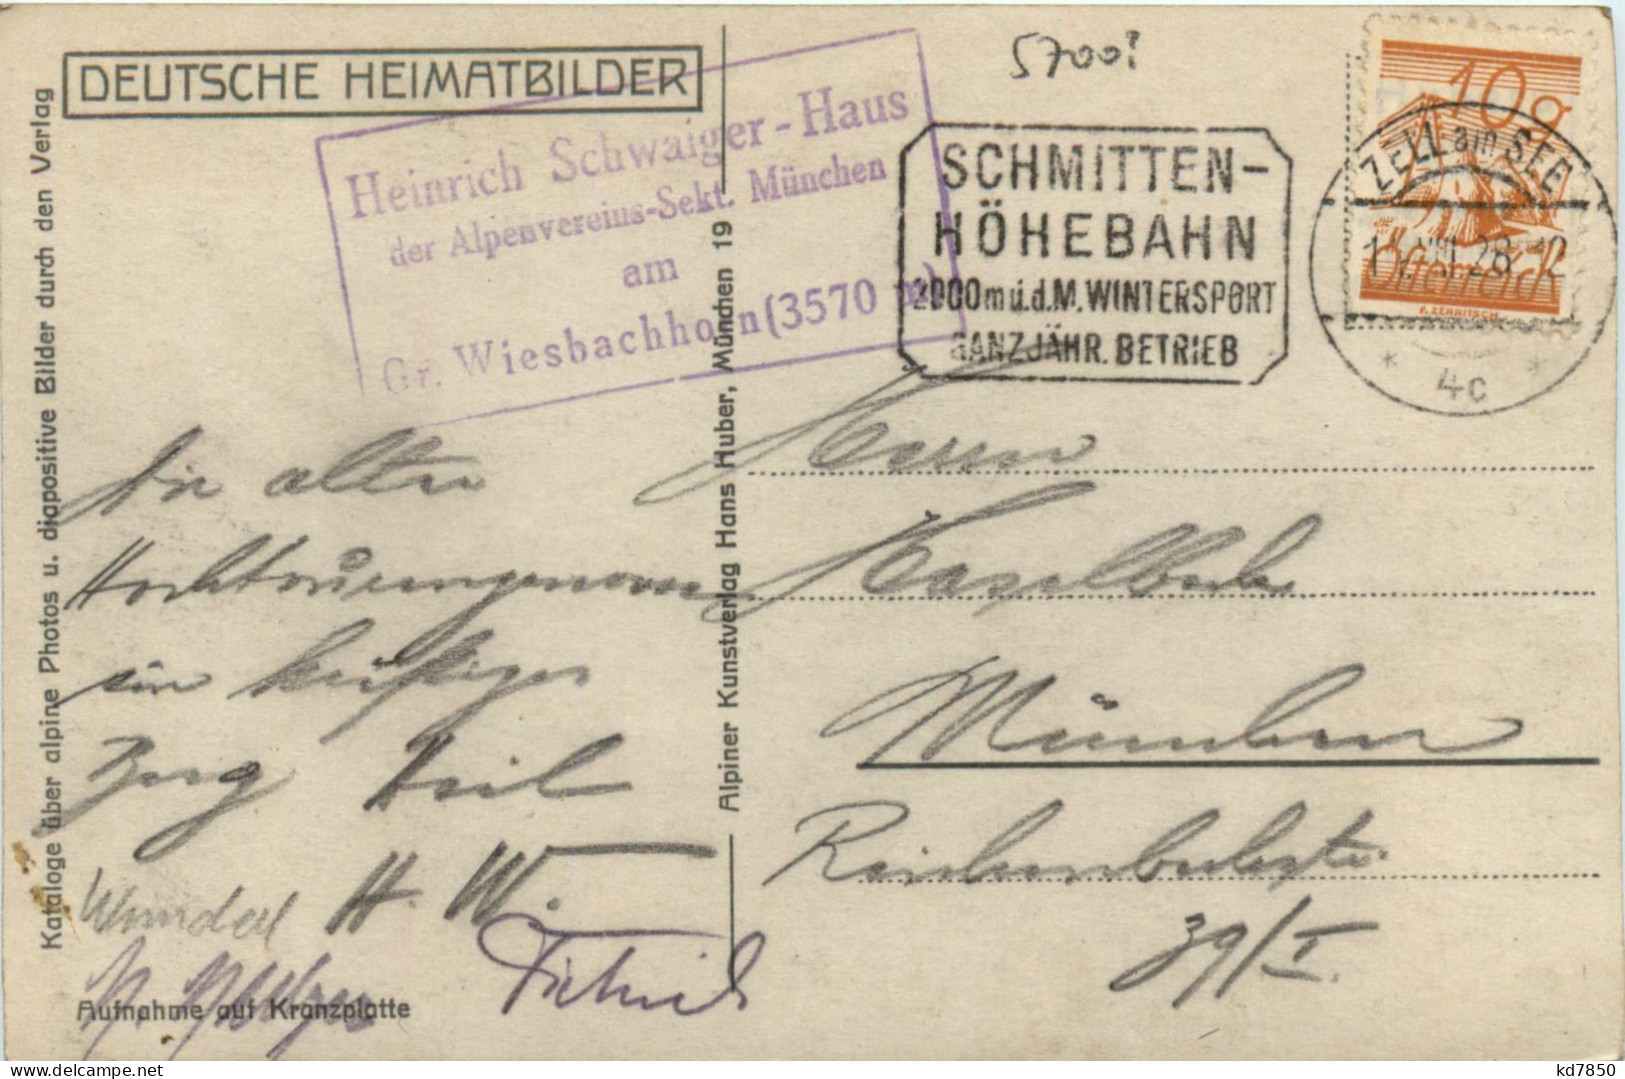 DEUTSCHE HEIMATBILDER
Kataloge über alpine Photos u. diapositive Bilder durch den Verlag
Heinrich Schwaiger-Haus
der Alpenvereins-Sekt. München
am
Gr. Wiesbachhorn (3570 m)
5700
SCHMITTEN-
HÖHEBAHN
2000 m ü.d.M. WINTERSPORT
GANZJÄHR. BETRIEB
10g
Österreich
ZELL am SEE
28
12
* 4c *
Alpiner Kunstverlag Hans Huber, München 19
alten
ein kräftiges
Berg Heil
H. W.
Herrn
München
39/I.
Aufnahme auf Kranzplatte
kd7850